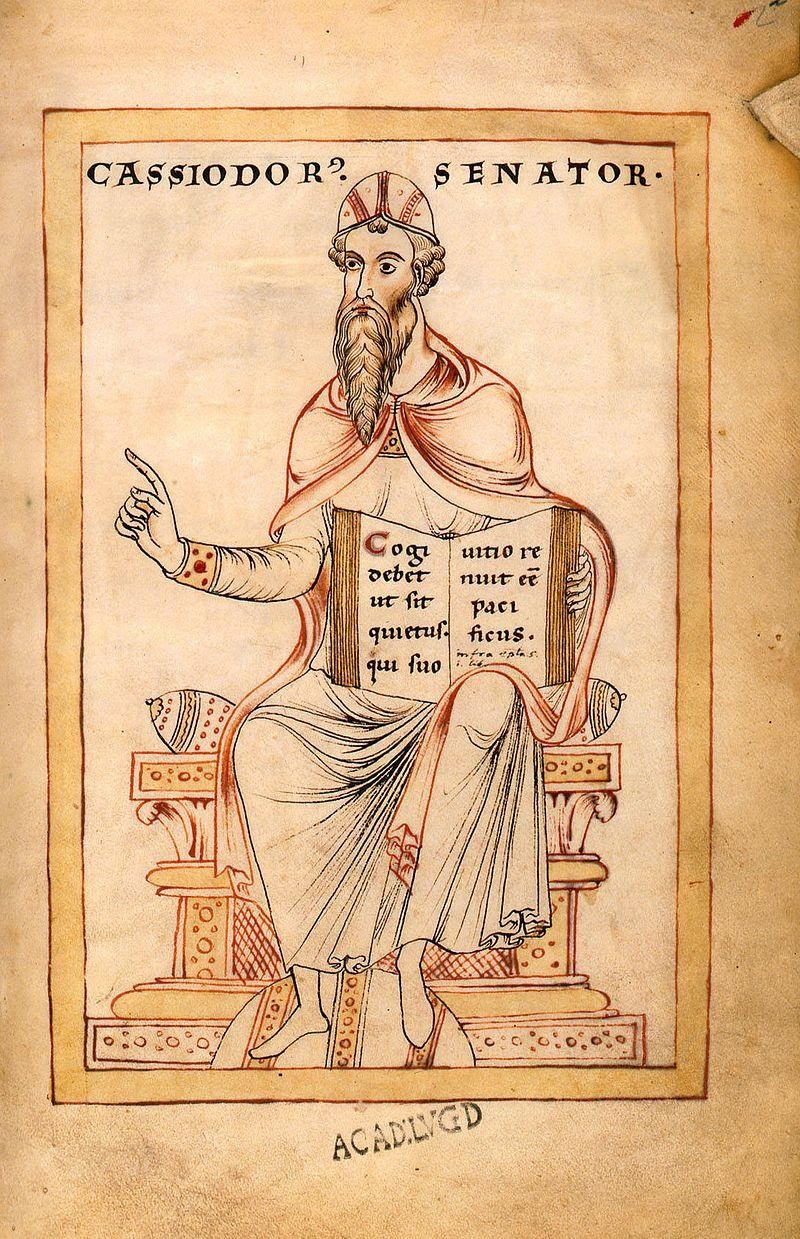 CASSIODORꝰ. SENATOR.
Cogi
debet
ut sit
quietus.
qui suo
uitio re
nuit eē
paci
ficus.
infra epła 5.
i. lib.
ACAD. LVGD